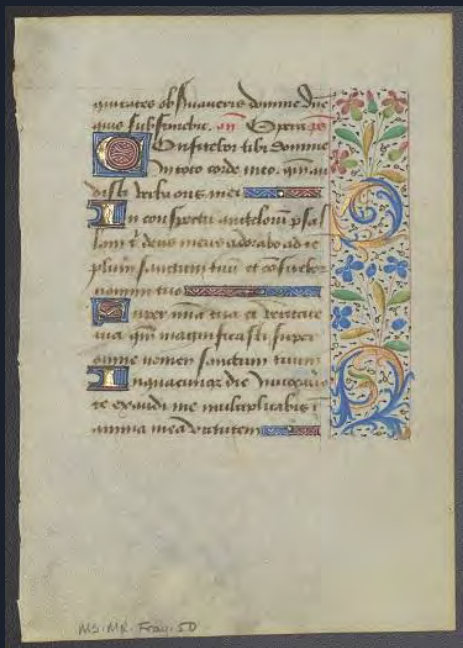 quitates observaveris domine dne
quis sustinebit. an Opera ps
Confitebor tibi domine
in toto corde meo. qm au
disti verba oris mei
In conspectu angeloru psal
lam t deus meus adorabo ad te
plum sanctum tuu et cofitebor
nomini tuo
Super mia tua et veritate
tua qm magnificasti super
omne nomen sanctum tuum
In quacunqz die invocavero
te exaudi me multiplicabis i
anima mea virtutem
MS. MR. Frag. 5D